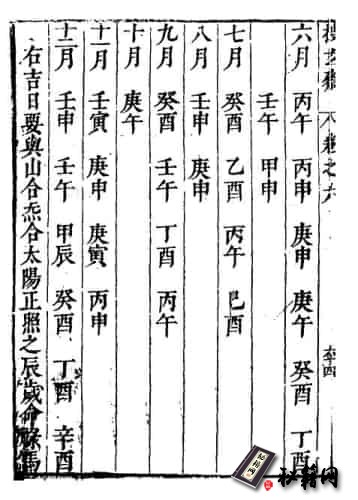 卷之六
六月 丙午 丙申 庚申 庚午 癸酉 丁酉
壬午 甲申
七月 癸酉 乙酉 丙午 己酉
八月 壬申 庚申
九月 癸酉 壬午 丁酉 丙午
十月 庚午
十一月 壬寅 庚申 庚寅 丙申
十二月 壬申 壬午 甲辰 癸酉 丁酉 辛酉
右吉日要與山合炁合太陽正照之辰歲命祿馬
秘籍网